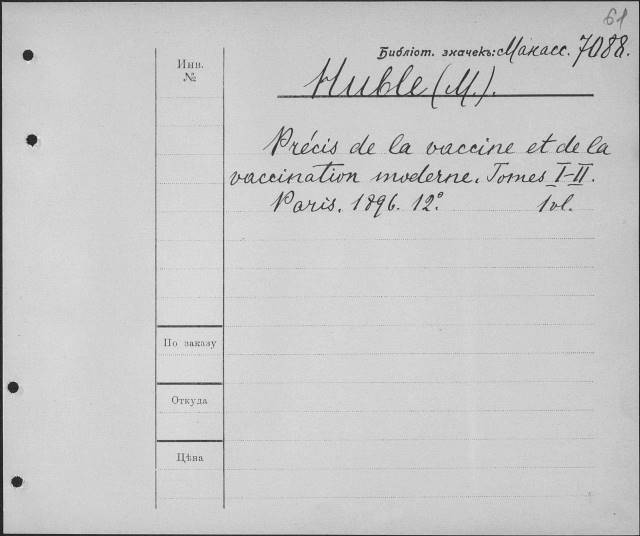 61
Библіот. значекъ: Манасс. 7088.
Инв.
№
Huble (M.).
Précis de la vaccine et de la
vaccination moderne. Tomes I-II.
Paris. 1896. 12°. 1 vol.
По заказу
Откуда
Цѣна